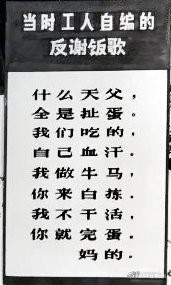 当时工人自编的
反谢饭歌
什么天父，
全是扯蛋。
我们吃的，
自己血汗。
我做牛马，
你来白拣。
我不干活，
你就完蛋。
妈的.